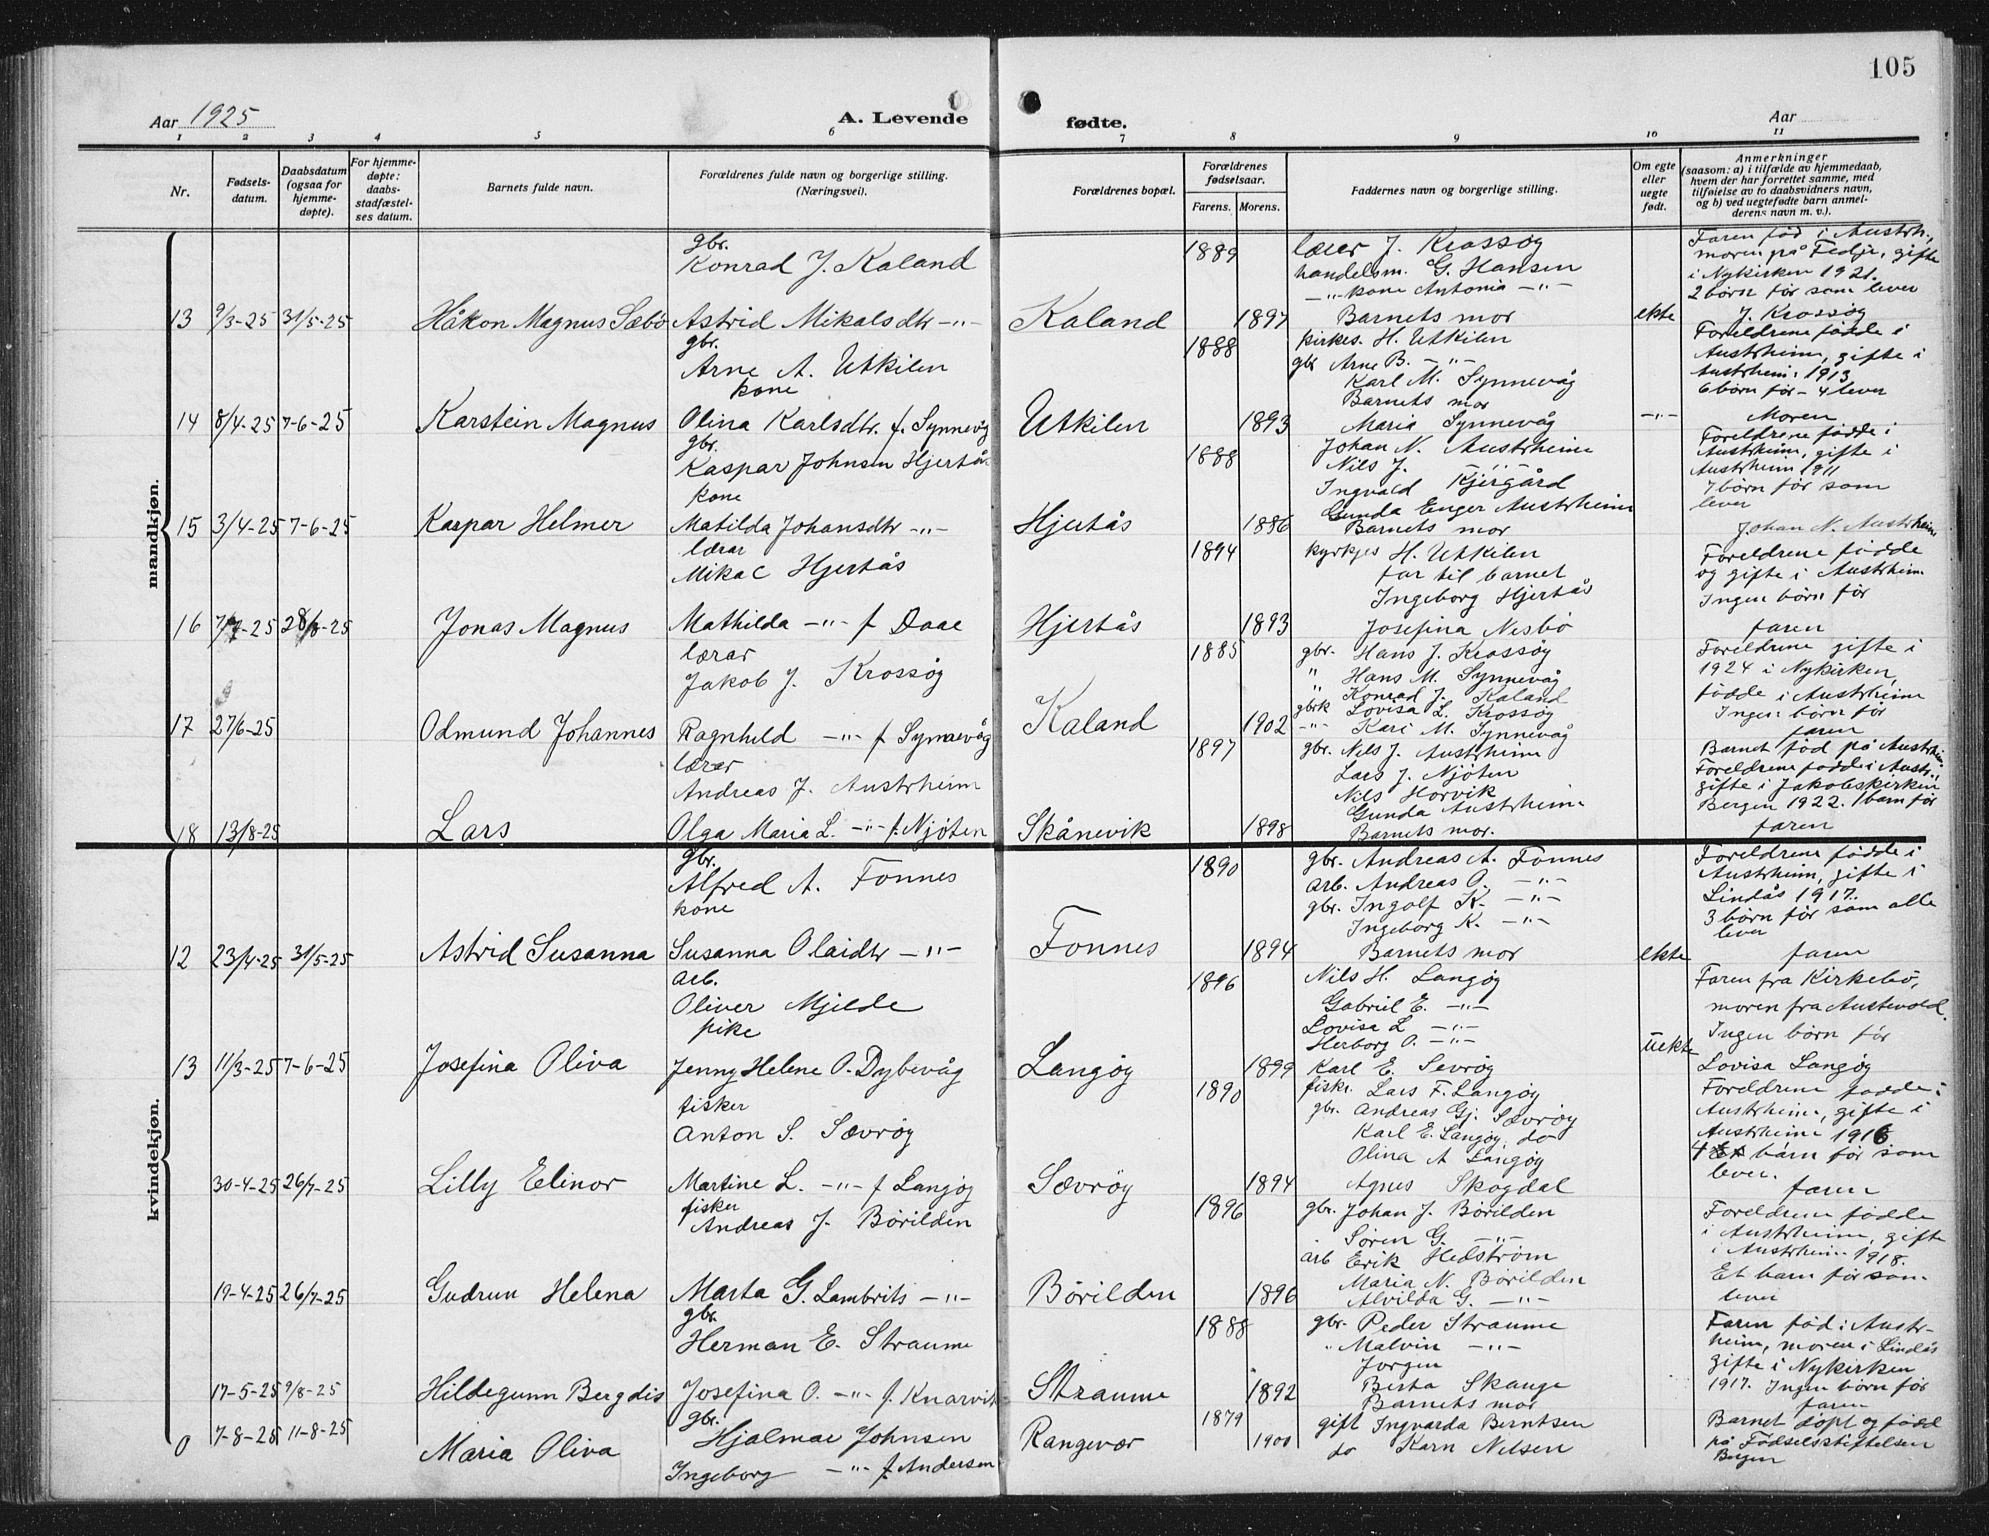 105
Aar 1925
A. Levende
fødte.
Aar
1 2 3 4 5 6 7 8 9 10 11
Nr.
Fødsels-
datum.
Daabsdatum
(ogsaa for
hjemme-
døpte).
For hjemme-
døpte:
daabs-
stadfæstel-
ses datum.
Barnets fulde navn.
Forældrenes fulde navn og borgerlige stilling.
(Næringsvei).
Forældrenes bopæl.
Forældrenes
fødselsaar.
Farens. Morens.
Faddernes navn og borgerlige stilling.
Om egte
eller
uegte
født.
Anmerkninger
(saasom: a) i tilfælde av hjemmedaab,
hvem der har forrettet samme, med
tilføielse av to daabsvidners navn,
og b) ved uegtefødte barn anmel-
derens navn m. v.).
mandkjøn.
13 9/3-25 31/5-25 Håkon Magnus Sæbø
gbr.
Konrad J. Kaland
Astrid Mikalsdtr -"-
Kaland
1889
1897
lærer J. Krossøy
handelsm. G. Hansen
-"- kone Antonia -"-
Barnets mor
ekte
Faren fød i Austrh.,
moren på Fedje, gifte
i Nykirken 1921.
2 børn før som lever
J. Krossøy
14 8/4-25 7-6-25 Karstein Magnus
gbr.
Arne A. Utkilen
kone
Olina Karlsdtr. f. Synnevåg
Utkilen
1888
1893
kirkes. H. Utkilen
gbr Arne B. -"-
Karl M. Synnevåg
Barnets mor
Maria Synnevåg
-"-
Foreldrene fødde i
Austrheim, gifte i
Austrheim 1913
6 børn før - 4 lever
Moren
15 3/4-25 7-6-25 Kaspar Helmer
gbr.
Kaspar Johnsen Hjertås
kone
Matilda Johansdtr -"-
Hjertås
1888
1886
Johan N. Austrheim
Nils J. -"-
Ingvald Kjærgård
Gunda Enger Austrheim
Barnets mor
Foreldrene fødde i
Austrheim, gifte i
Austrheim 1911
7 børn før som
lever
Johan N. Austrheim
16 7/7-25 28/8-25 Jonas Magnus
lærar
Mikal Hjertås
Mathilda -"- f Daae
Hjertås
1894
1893
kyrkjes H. Utkilen
far til barnet
Ingeborg Hjertås
Josefina Nesbø
Foreldrene fødde
og gifte i Austrheim
Ingen børn før
faren
17 27/6-25 Odmund Johannes
lærar
Jakob J. Krossøy
Ragnhild -"- f Synnevåg
Kaland
1885
1902
gbr. Hans J. Krossøy
" Hans M. Synnevåg
" Konrad J. Kaland
gbrk Lovisa L. Krossøy
-"- Kari M. Synnevåg
Foreldrene gifte i
1924 i Nykirken,
fødde i Austrheim
Ingen børn før
faren
18 13/8-25 Lars
lærer
Andreas J. Austrheim
Olga Maria L. -"- f. Njøten
Skånevik
1897
1898
gbr. Nils J. Austrheim
Lars J. Njøten
Nils Horvik
Gunda Austrheim
Barnets mor.
Barnet fød på Austrheim
Foreldrene fødde i Austr.,
gifte i Jakobskirken
Bergen 1922. 1 barn før
faren
kvindekjøn.
12 23/4-25 31/5-25 Astrid Susanna
gbr.
Alfred A. Fonnes
kone
Susanna Olaidtr -"-
Fonnes
1890
1894
gbr. Andreas A. Fonnes
arb. Andreas O. -"-
gbr. Ingolf K. -"-
Ingeborg K. -"-
Barnets mor
ekte
Foreldrene fødde i
Austrheim, gifte i
Lindås 1917.
3 børn før som alle
lever
faren
13 11/3-25 7-6-25 Josefina Oliva
arb.
Oliver Mjelde
pike
Jenny Helene O. Dybevåg
Langøy
1896
1899
Nils H. Langøy
Gabriel E. -"-
Lovisa L -"-
Herborg O. -"-
Karl E. Sevrøy
uekte
Faren fra Kirkebø,
moren fra Austevold.
Ingen børn før
Lovisa Langøy
30-4-25 26/7-25 Lilly Elinor
fisker
Anton S. Sævrøy
Martine L. -"- f Langøy
Sævrøy
1890
1894
fiskr. Lars F. Langøy
gbr. Andreas Gj. Sævrøy
Karl E. Langøy, do
Olina A Langøy
Agnes Skogdal
Foreldrene fødde i
Austrheim, gifte i
Austrheim 1916
4 børn før som
lever.
faren
19-4-25 26/7-25 Gudrun Helena
fisker
Andreas J. Børilden
Marta G. Lambrits -"-
Børilden
1896
1896
gbr. Johan J. Børilden
Søren G. -"-
arb Erik Hedstrøm
Maria N. Børilden
Alvilda G. -"-
Foreldrene fødde
i Austrheim, gifte
i Austrheim 1918.
Et barn før som
lever
17-5-25 9/8-25 Hildegunn Bergdis
gbr.
Herman E. Straume
Josefina O. -"- f. Knarvik
Straume
1888
1892
gbr. Peder Straume
" Malvin -"-
Jørgen
Berta Skauge
Barnets mor
Faren fød i Austr-
heim, moren i Lindås
gifte i Nykirken
1917. Ingen børn før
faren
0 7-8-25 11-8-25 Maria Oliva
gbr.
Hjalmar Johnsen
Ingeborg -"- f. Andersen
Rangevær
1879
1900
gift Ingvarda Berntsen
do Karn Nelsen
Barnet døpt og født
på Fødselsstiftelsen
Bergen